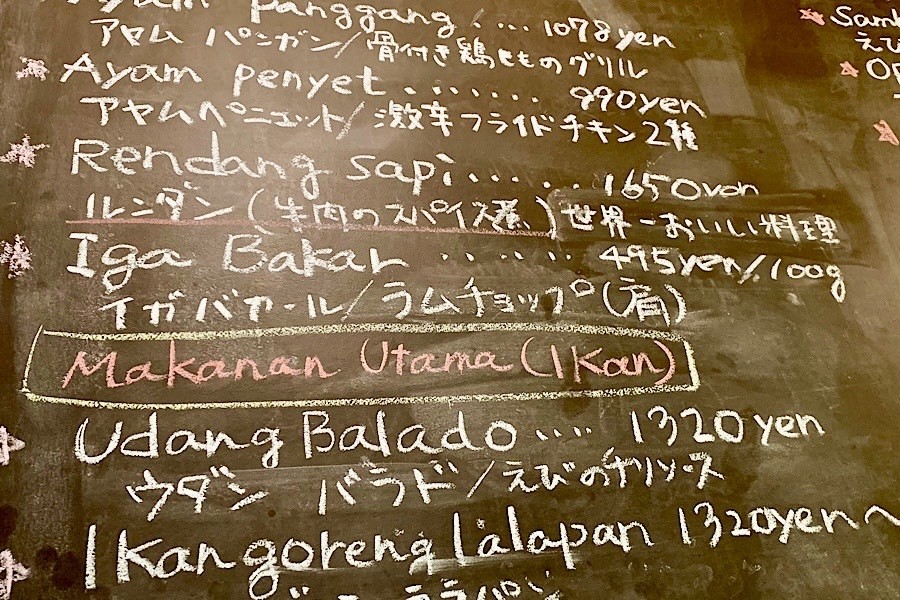 Ayam Panggang .... 1078yen
アヤム パンガン/骨付き鶏もものグリル
Ayam penyet ....... 990yen
アヤムペニェット/激辛フライドチキン2種
Rendang sapi ...... 1650yen
ルンダン(牛肉のスパイス煮) 世界一おいしい料理
Iga Bakar ...... 495yen/100g
イガバカール/ラムチョップ(肩)
Makanan Utama (Ikan)
Udang Balado .... 1320yen
ウダン バラド/えびのチリソース
Ikan goreng lalapan 1320yen〜
Samb
えび
Op